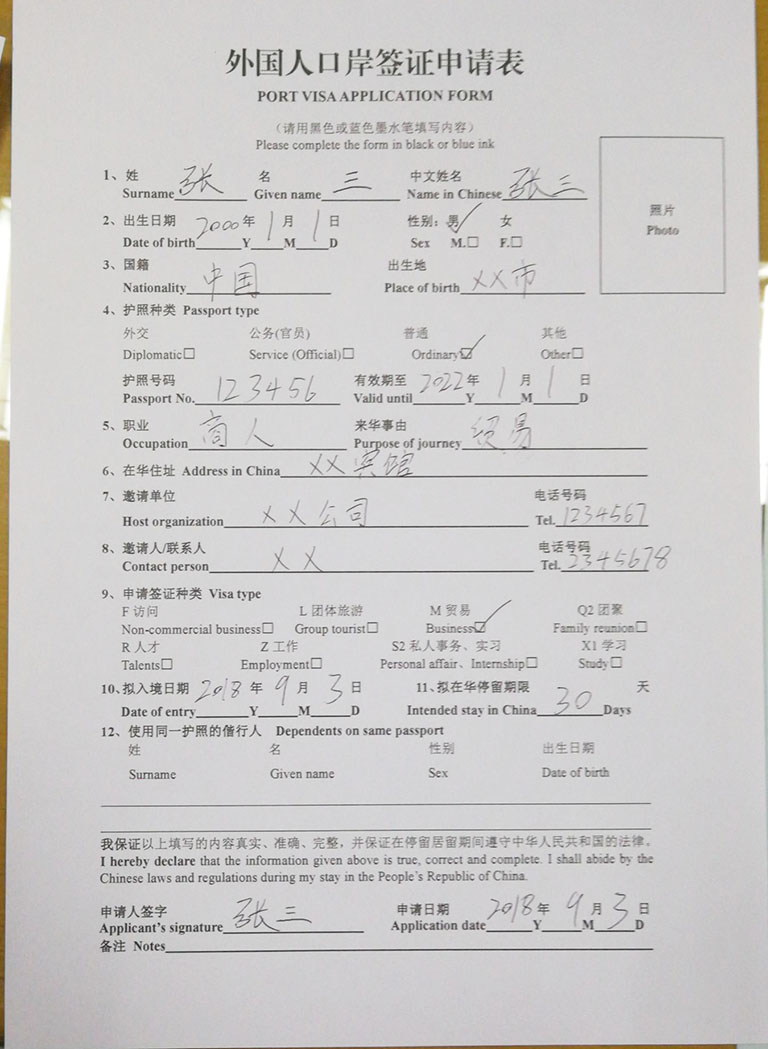 外国人口岸签证申请表
PORT VISA APPLICATION FORM
（请用黑色或蓝色墨水笔填写内容）
Please complete the form in black or blue ink
照片
Photo
1、姓 名 中文姓名
Surname 张 Given name 三 Name in Chinese 张三
2、出生日期 2000 年 1 月 1 日 性别: 男 ✓ 女
Date of birth Y M D Sex M.□ F.□
3、国籍 出生地
Nationality 中国 Place of birth XX市
4、护照种类 Passport type
外交 公务(官员) 普通 其他
Diplomatic□ Service (Official)□ Ordinary☑ Other□
护照号码 有效期至 2022 年 1 月 1 日
Passport No. 123456 Valid until Y M D
5、职业 来华事由
Occupation 商人 Purpose of journey 贸易
6、在华住址 Address in China XX宾馆
7、邀请单位 电话号码
Host organization XX公司 Tel. 1234567
8、邀请人/联系人 电话号码
Contact person XX Tel. 2345678
9、申请签证种类 Visa type
F 访问 L 团体旅游 M 贸易 Q2 团聚
Non-commercial business□ Group tourist□ Business☑ Family reunion□
R 人才 Z 工作 S2 私人事务、实习 X1 学习
Talents□ Employment□ Personal affair、Internship□ Study□
10、拟入境日期 2018 年 9 月 3 日 11、拟在华停留期限 天
Date of entry Y M D Intended stay in China 30 Days
12、使用同一护照的偕行人 Dependents on same passport
姓 名 性别 出生日期
Surname Given name Sex Date of birth
我保证以上填写的内容真实、准确、完整，并保证在停留居留期间遵守中华人民共和国的法律。
I hereby declare that the information given above is true, correct and complete. I shall abide by the
Chinese laws and regulations during my stay in the People's Republic of China.
申请人签字 申请日期 2018 年 9 月 3 日
Applicant's signature 张三 Application date Y M D
备注 Notes